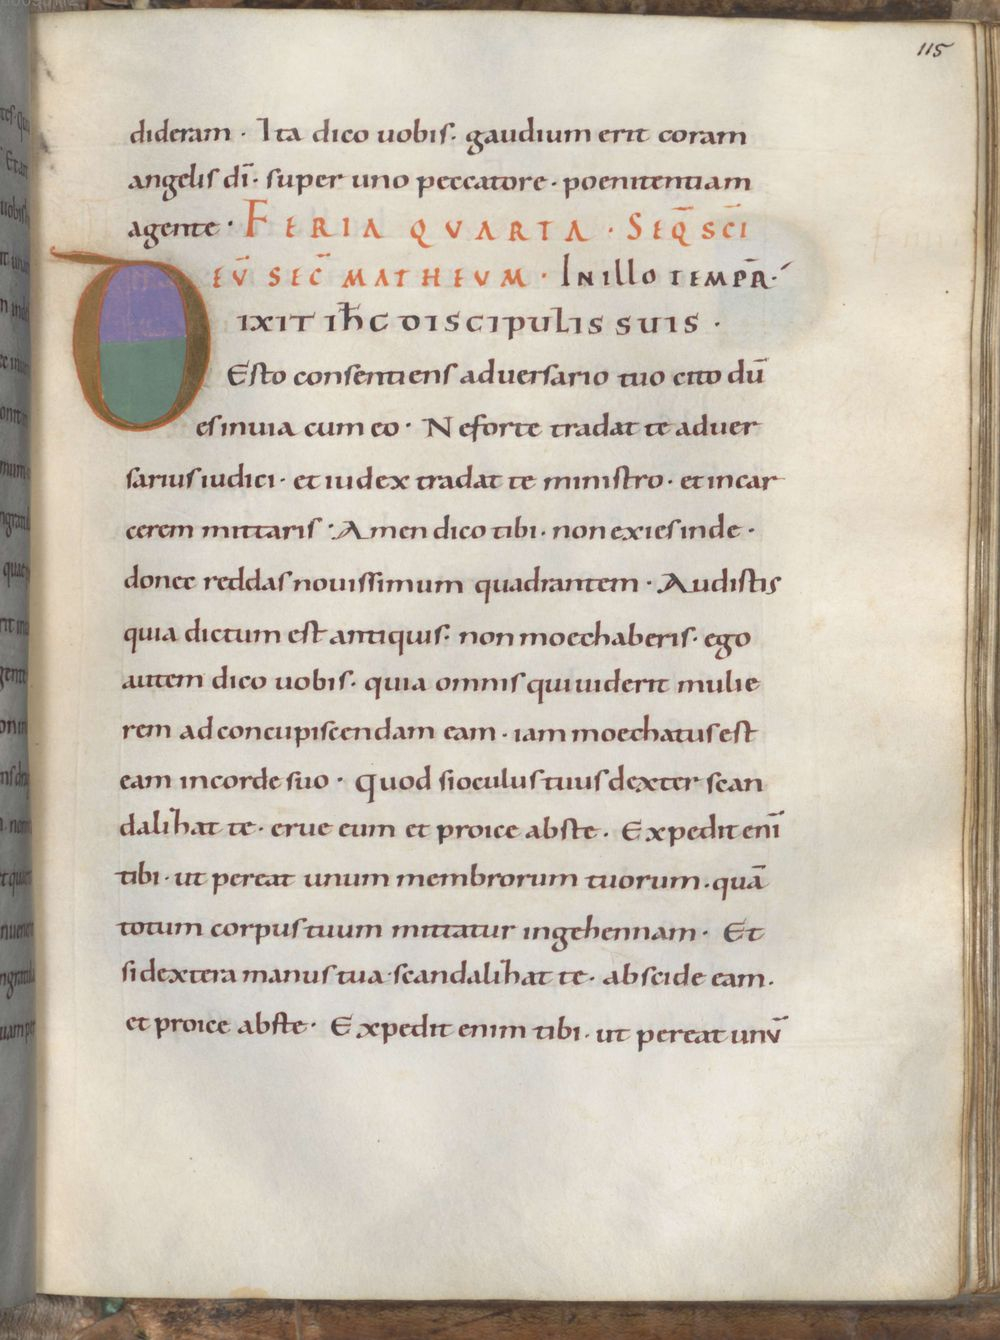 115
dideram · Ita dico uobis · gaudium erit coram
angelis dī · super uno peccatore · poenitentiam
agente · FERIA QVARTA · SEQ̄ SC̄I
EV̄ SEC̄ MATHEVM · IN ILLO TEMPR̄ ·
DIXIT IH̄C DISCIPULIS SUIS ·
Esto consentiens aduersario tuo cito dū
es in uia cum eo · Ne forte tradat te aduer
sarius iudici · et iudex tradat te ministro · et in car
cerem mittaris · Amen dico tibi · non exies inde ·
donec reddas nouissimum quadrantem · Audistis
quia dictum est antiquis · non moechaberis · ego
autem dico uobis · quia omnis qui uiderit mulie
rem ad concupiscendam eam · iam moechatus est
eam in corde suo · Quod si oculus tuus dexter scan
dalihat te · erue eum et proice abs te · Expedit enī
tibi · ut pereat unum membrorum tuorum · quā
totum corpus tuum mittatur in gehennam · Et
si dextera manus tua scandalihat te · abscide eam ·
et proice abs te · Expedit enim tibi · ut pereat unv̄